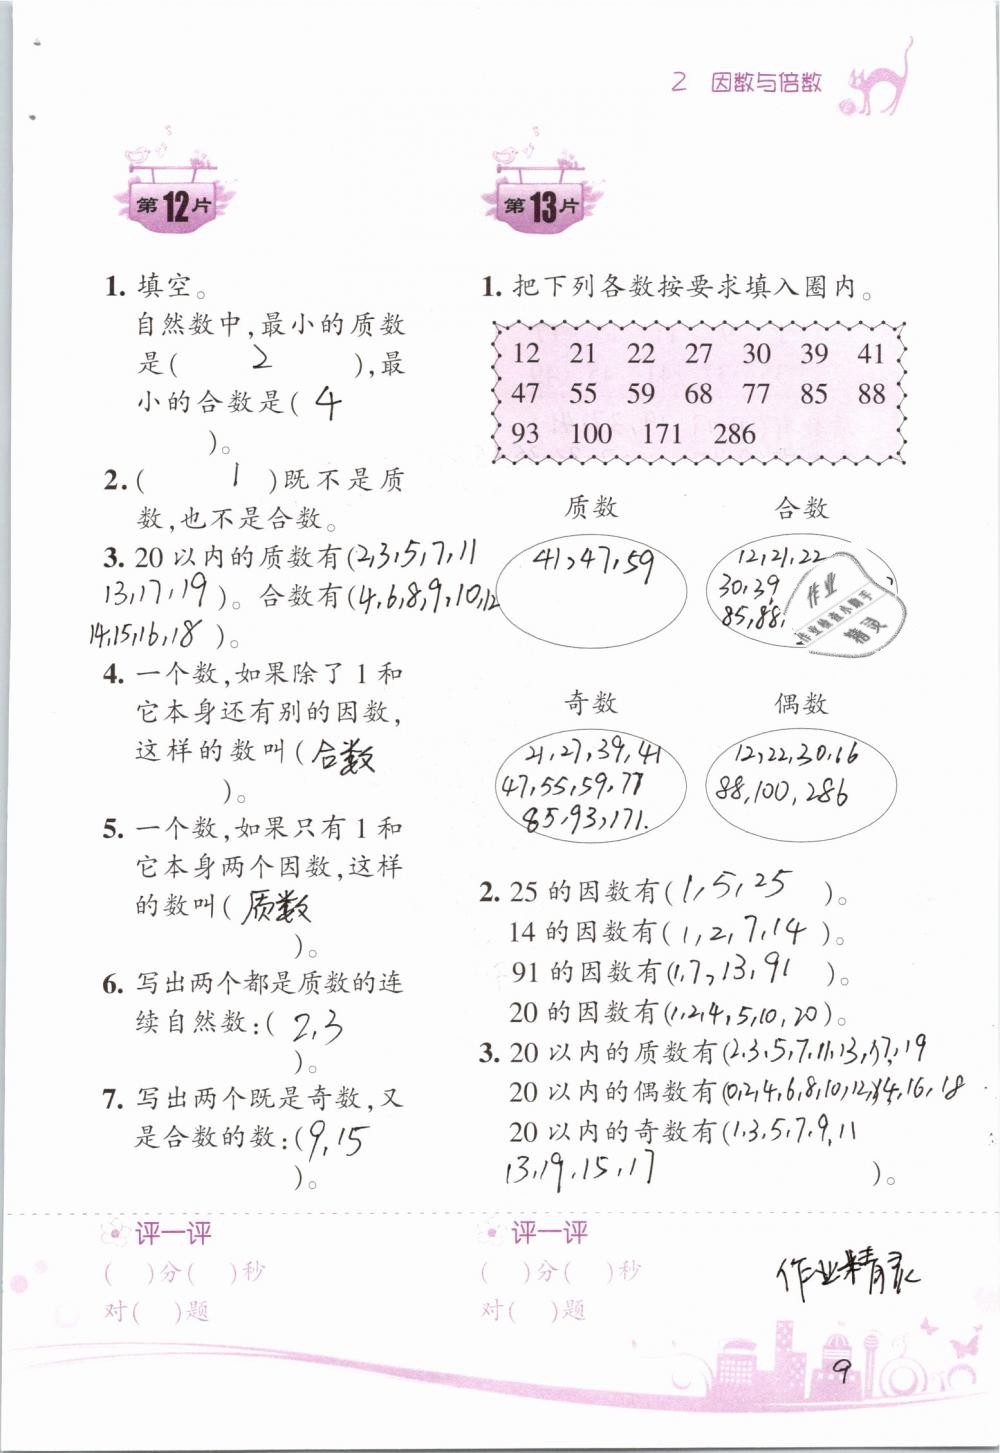 2 因数与倍数
第12片
1. 填空。
自然数中,最小的质数
是( 2 ),最
小的合数是( 4
)。
2. ( 1 )既不是质
数,也不是合数。
3. 20 以内的质数有(2,3,5,7,11
13,17,19 )。合数有(4,6,8,9,10,12
14,15,16,18 )。
4. 一个数,如果除了 1 和
它本身还有别的因数,
这样的数叫( 合数
)。
5. 一个数,如果只有 1 和
它本身两个因数,这样
的数叫( 质数
)。
6. 写出两个都是质数的连
续自然数:( 2,3
)。
7. 写出两个既是奇数,又
是合数的数:(9,15
)。
评一评
( )分( )秒
对( )题
第13片
1. 把下列各数按要求填入圈内。
12 21 22 27 30 39 41
47 55 59 68 77 85 88
93 100 171 286
质数 合数
41,47,59
12,21,22
30,39
85,88,
作业
作业检查小助手
精灵
奇数 偶数
21,27,39,41
47,55,59,77
85,93,171.
12,22,30,66
88,100,286
2. 25 的因数有(1,5,25 )。
14 的因数有(1,2,7,14 )。
91 的因数有(1,7,13,91 )。
20 的因数有(1,2,4,5,10,20)。
3. 20 以内的质数有(2,3,5,7,11,13,17,19
20 以内的偶数有(0,2,4,6,8,10,12,14,16,18
20 以内的奇数有(1,3,5,7,9,11
13,19,15,17 )。
评一评
( )分( )秒
对( )题
作业精灵
9